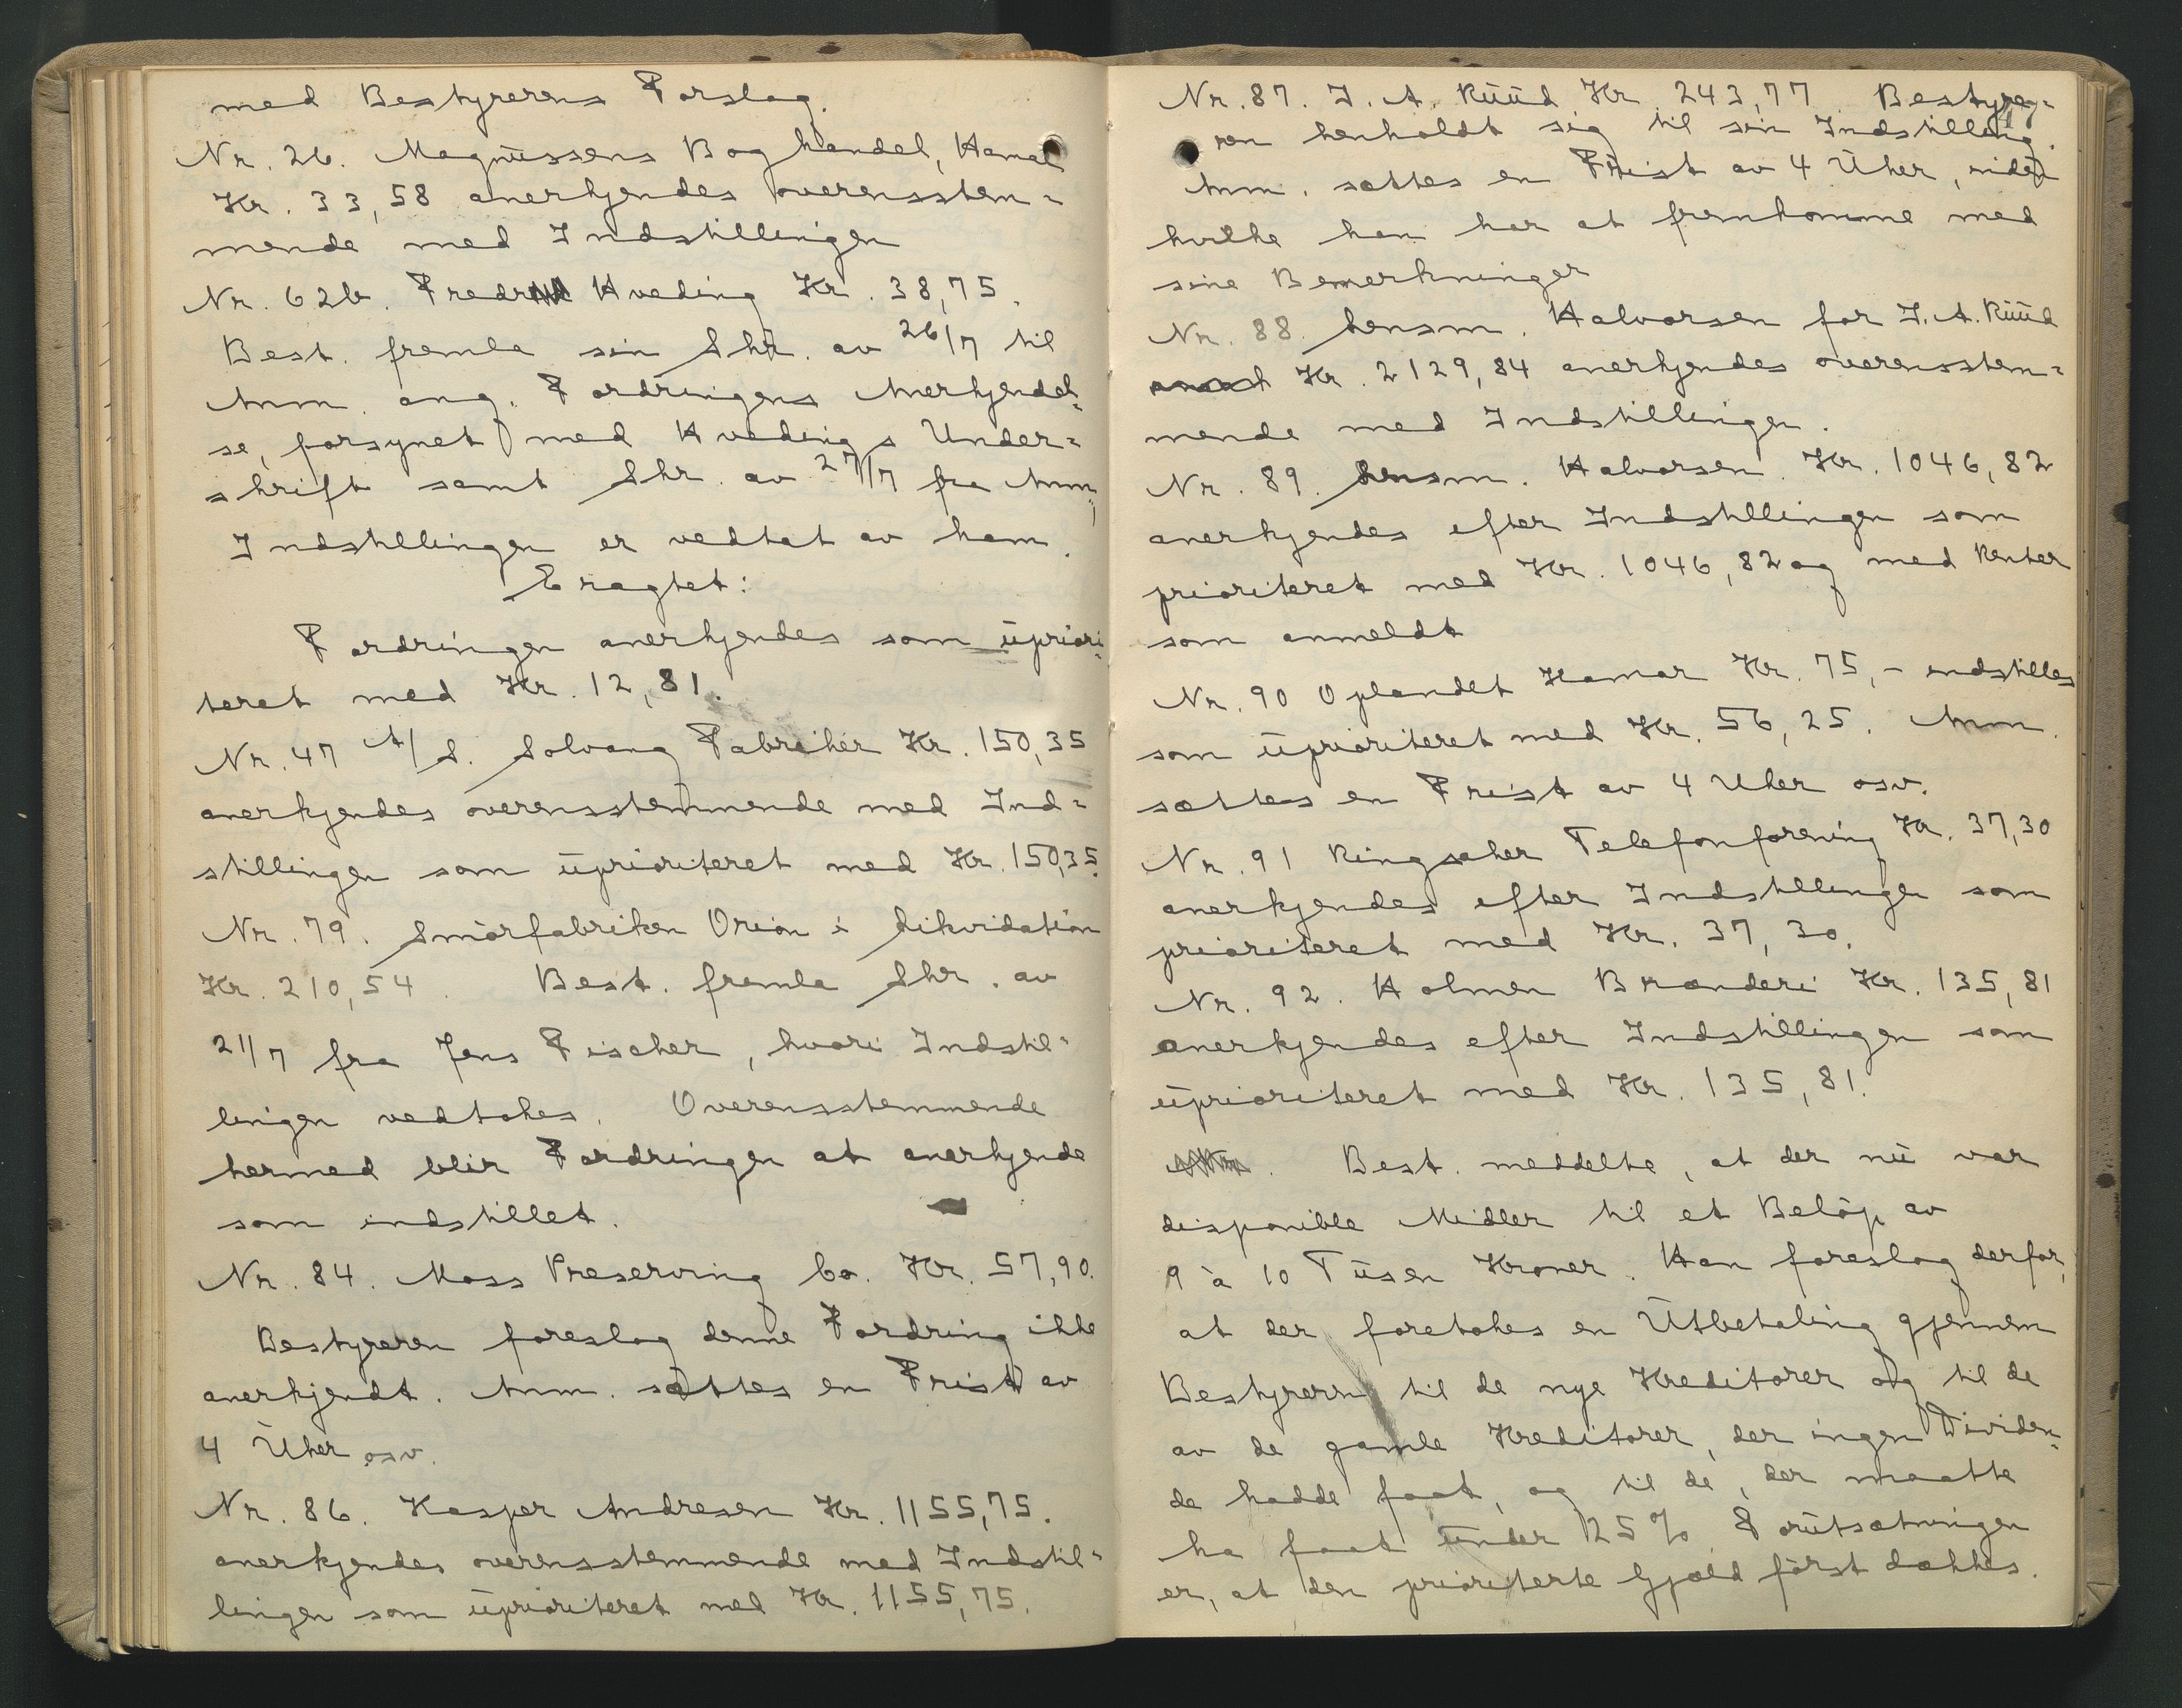 med Bestyrerens Forslag.
Nr. 26. Magnussens Boghandel, Hamar
Kr. 33,58 anerkjendes overensstem=
mende med Indstillingen
Nr. 62b. Fredr. Hveding Kr. 38,75.
Best. fremla sin Skr. av 26/7 til
Anm. ang. Fordringens Anerkjendel=
se, forsynet med Hvedings Under=
skrift samt Skr. av 27/7 fra Anm.,
Indstillingen er vedtat av ham.
Eragtet:
Fordringen anerkjendes som upriori=
teret med Kr. 12,81.
Nr. 47 A/S. Solvang Fabriker Kr. 150,35
anerkjendes overensstemmende med Ind=
stillingen som uprioriteret med Kr. 150,35.
Nr. 79. Smörfabriken Orion i Likvidation
Kr. 210,54. Best. fremla Skr. av
21/7 fra Jens Fischer, hvori Indstil=
lingen vedtokes. Overensstemmende
hermed blir Fordringen at anerkjende
som indstillet.
Nr. 84. Moss Preserving Co. Kr. 57,90.
Bestyreren foreslog denne Fordring ikke
anerkjendt. Anm. sættes en Frist av
4 Uker osv.
Nr. 86. Kasper Andresen Kr. 1155,75.
anerkjendes overensstemmende med Indstil=
lingen som uprioriteret med Kr. 1155,75.
Nr. 87. J. A. Ruud Kr. 243,77. Bestyre=
ren henholdt sig til sin Indstilling.
Anm. sættes en Frist av 4 Uker, inden
hvilke han har at fremkomme med
sine Bemerkninger
Nr. 88. Lensm. Halvorsen for J. A. Ruud
Kr. 2129,84 anerkjendes overensstem=
mende med Indstillingen.
Nr. 89. Lensm. Halvorsen. Kr. 1046,82
anerkjendes efter Indstillingen som
prioriteret med Kr. 1046,82 og med Renter
som anmeldt
Nr. 90 Oplandet Hamar Kr. 75,- indstilles
som uprioriteret med Kr. 56,25. Anm.
sættes en Frist av 4 Uker osv.
Nr. 91 Ringsaker Telefonforening Kr. 37,30
anerkjendes efter Indstillingen som
prioriteret med Kr. 37,30.
Nr. 92. Holmen Brænderi Kr. 135,81
anerkjendes efter Indstillingen som
uprioriteret med Kr. 135,81.
Best. meddelte, at der nu var
disponible Midler til et Beløp av
9 à 10 Tusen Kroner. Han foreslog derfor,
at der foretokes en Utbetaling gjennem
Bestyreren til de nye Kreditorer og til de
av de gamle Kreditorer, der ingen Dividen=
de hadde faat, og til de, der maatte
ha faat under 25%. Forutsætningen
er, at den prioriterte Gjæld først dækkes.